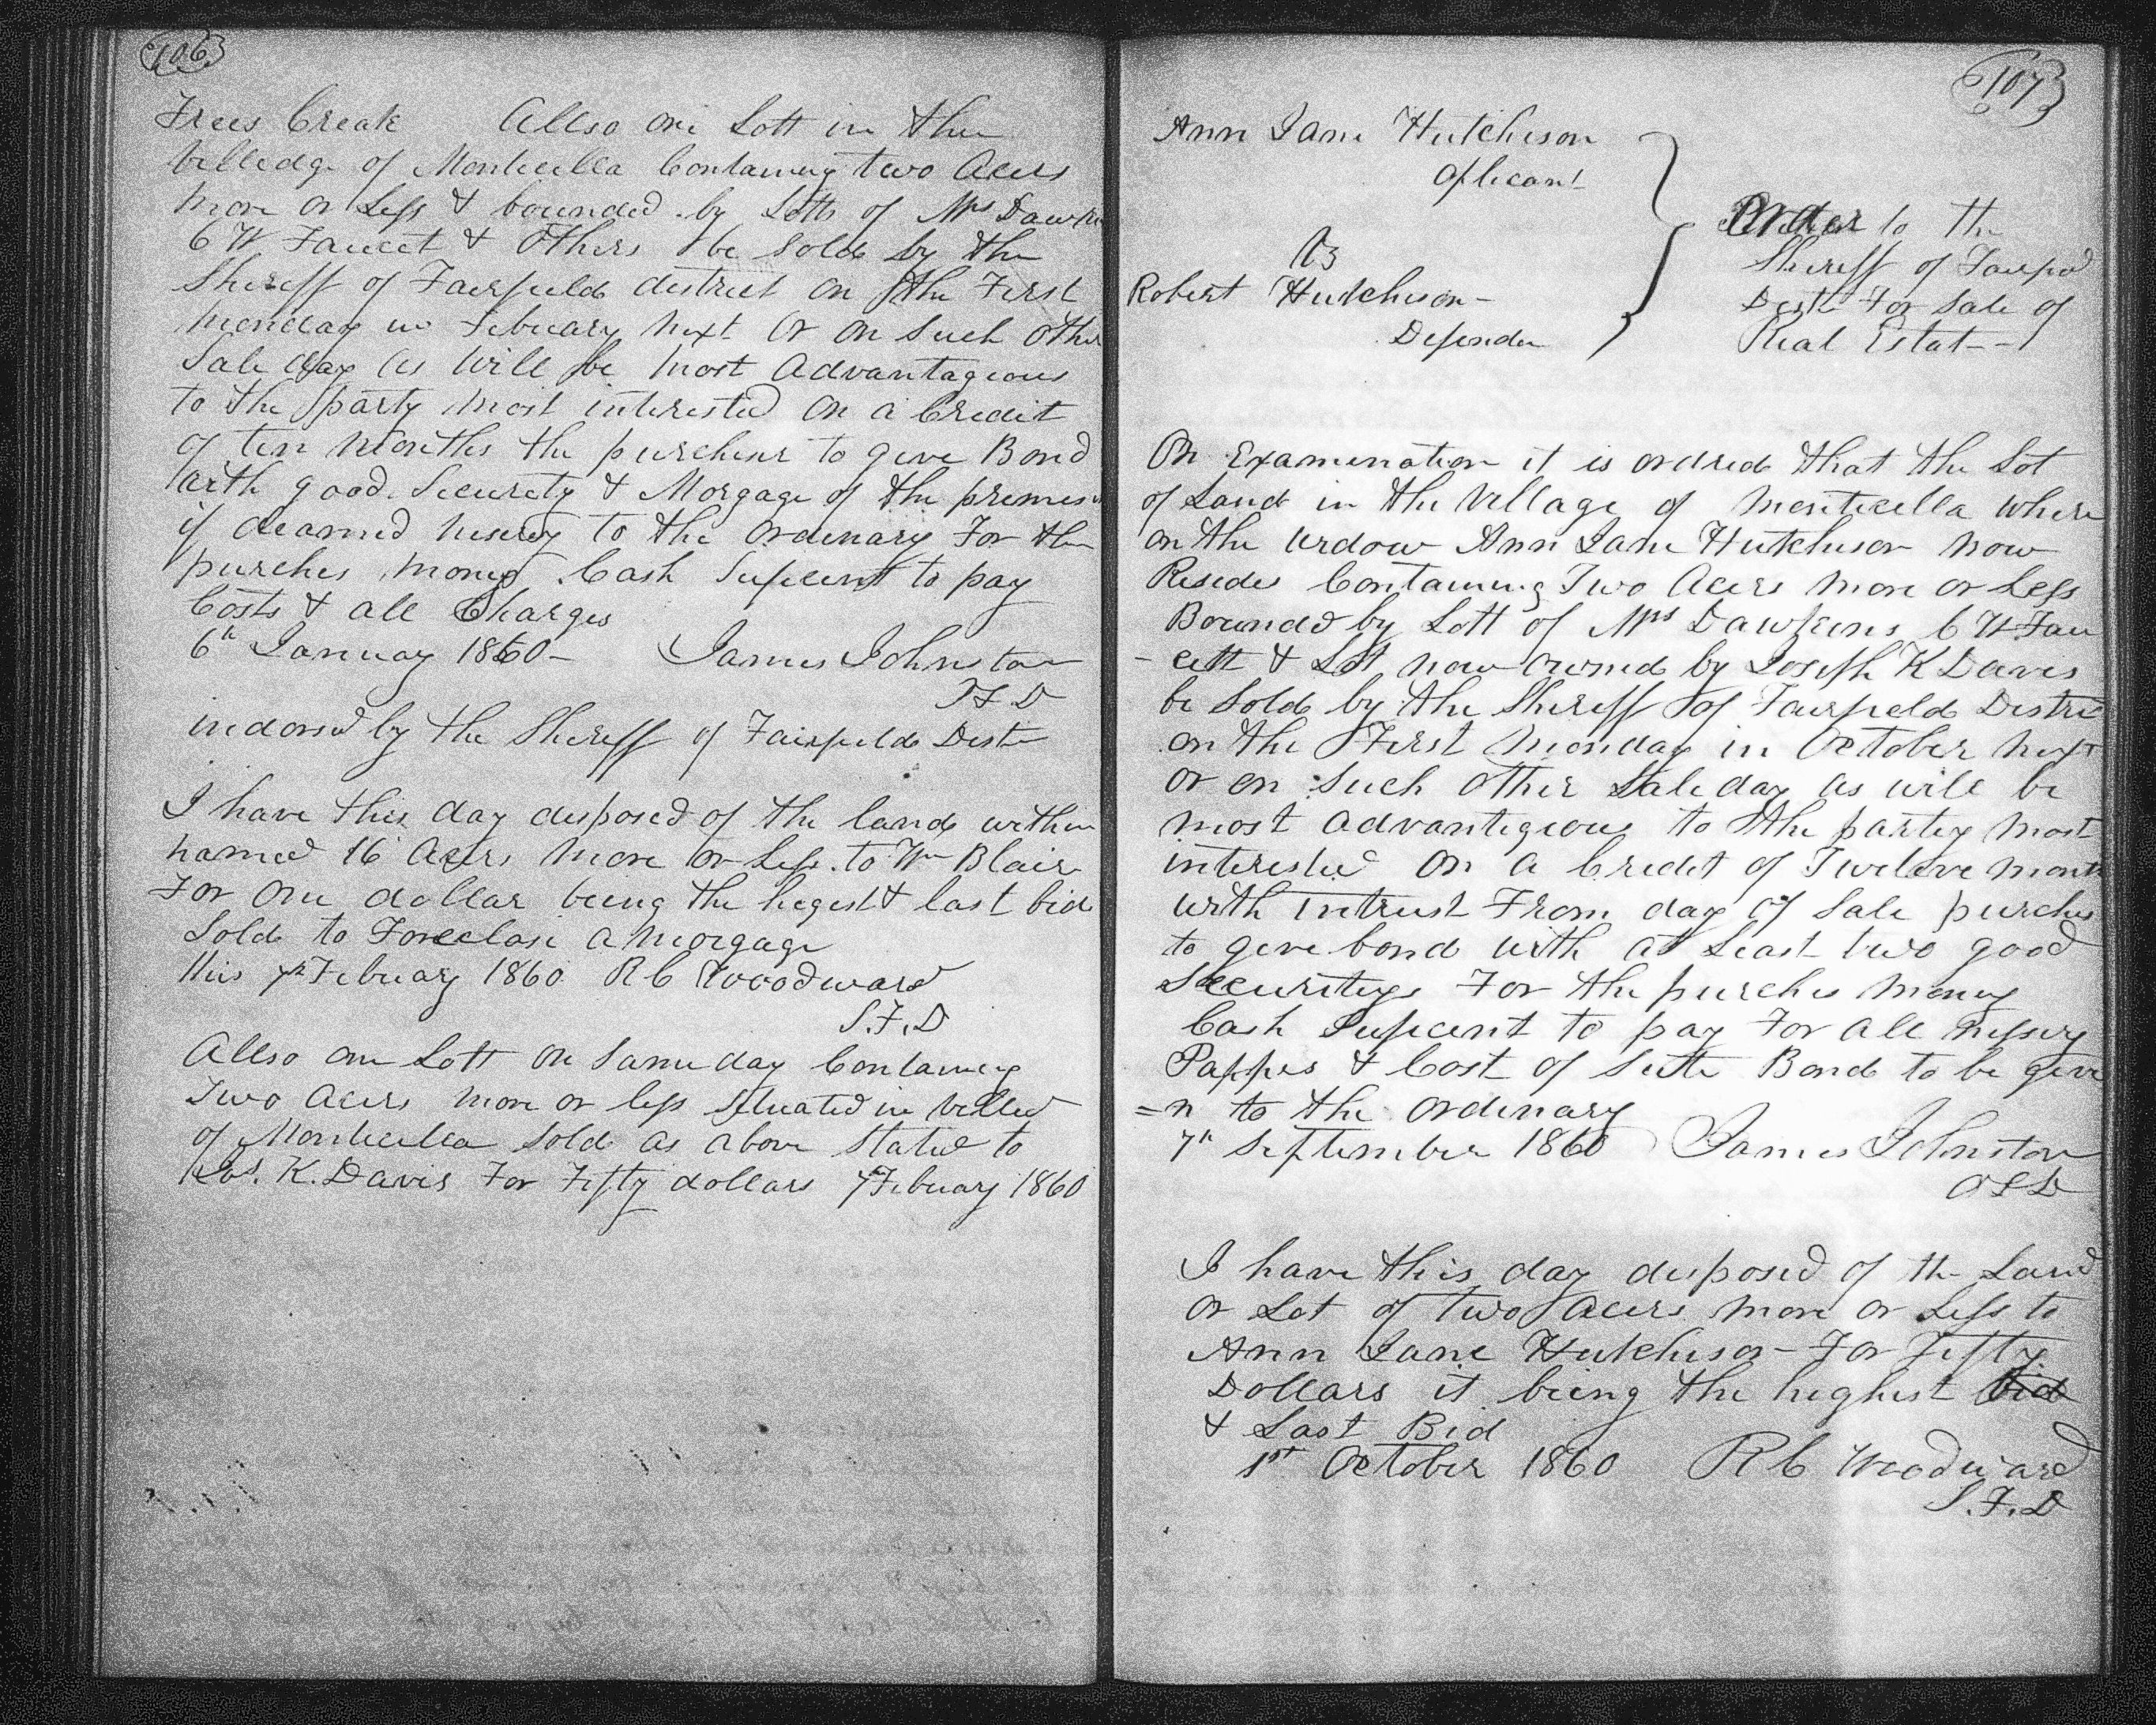 106
Frees Creak Allso one Lott in the
villedge of Monticella Containing two Acers
more or Less & bounded by Lotts of Mrs Dawkins
C W Faucet & others be sold by the
Sheriff of Fairfield district on the First
monday in Febuary next or on Such other
Sale day as will be most advantagious
to the party most interested on a Credit
of ten months the purcheser to give Bond
with good Security & Morgage of the premises
if deamed nesery to the ordinary For the
purches money Cash Suficent to pay
Costs & all Charges
6th January 1860 James Johnston
indorsed by the Sheriff of Fairfield Distr
I have this day disposed of the land within
named 16 Acers more or Less to Wm Blair
For one dollar being the hegest & last bid
Sold to Foreclose a morgage
this 7th Febuary 1860 R C Woodward
S.F.D
Allso one Lott on same day Containing
Two Acers more or less Situated in villed
of Monticella Sold as above Stated to
Jos. K. Davis For Fifty dollars 7 Febuary 1860
107
Ann Jane Hutchison
Aplicant
vs
Robert Hutchison
Defender
Order to the
Sheriff of Fairfield
Distr For Sale of
Real Estat
On Examination it is ordred that the Lot
of Land in the Village of Monticella where
on the Widow Ann Jane Hutchison now
Resides Containing Two Acers more or Less
Bounded by Lott of Mrs Dawkins C W Fau
- cett & Lot now owned by Joseph K Davis
be Sold by the Sheriff of Fairfield Distric
on the First monday in October next
or on Such other Sale day as will be
most advantigious to the partey most
interested on a Credit of Twelve month
with intrust From day of Sale purches
to give bond with at Least two good
Securitys For the purches money
Cash Suficent to pay For all nessery
Pappes & Cost of Sute Bond to be give
=n to the ordinary
7th September 1860 James Johnston
OFD
I have this day disposed of the Land
or Lot of two Acers more or Less to
Ann Jane Hutchison For Fifty
Dollars it being the highest bid
& Last Bid
1st October 1860 R C Woodward
S.F.D